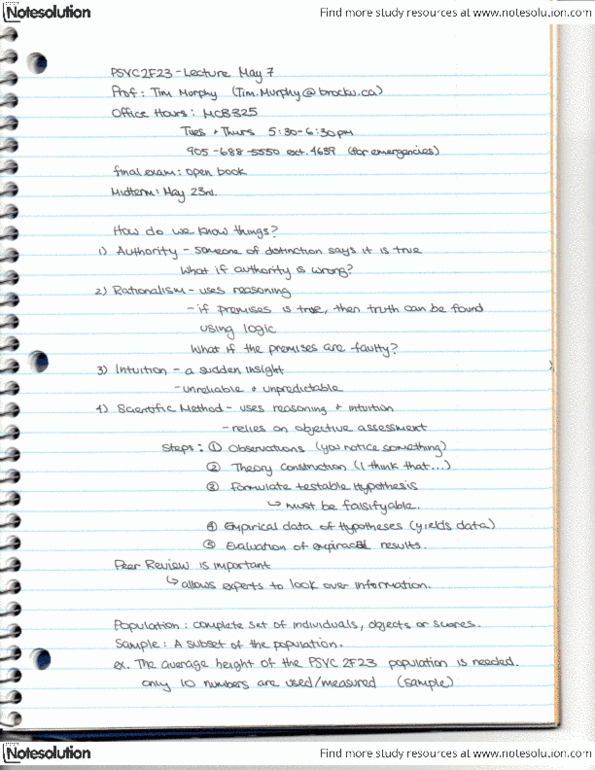 Notesolution
Find more study resources at www.notesolution.com
PSYC2F23 - Lecture May 7
Prof: Tim Murphy (Tim.Murphy@brocku.ca)
Office Hours: MCB325
Tues + Thurs 5:30-6:30pm
905-688-5550 ext. 4659 (for emergencies)
final exam: open book
Midterm: May 23rd.
How do we know things?
1) Authority - someone of distinction says it is true
What if authority is wrong?
2) Rationalism - uses reasoning
- if premises is true, then truth can be found
using logic
What if the premises are faulty?
3) Intuition - a sudden insight
- unreliable + unpredictable
4) Scientific Method - uses reasoning + intuition
- relies on objective assessment
Steps: ① Observations (you notice something)
② Theory Construction (I think that...)
③ Formulate testable Hypothesis
↳ must be falsifyable.
④ Empirical data of Hypotheses (yields data)
⑤ Evaluation of empiracal results.
Peer Review is important
↳ allows experts to look over information.
Population: complete set of individuals, objects or scores.
Sample: A subset of the population.
ex. The average height of the PSYC 2F23 population is needed.
only 10 numbers are used/measured (sample)
Notesolution
Find more study resources at www.notesolution.com